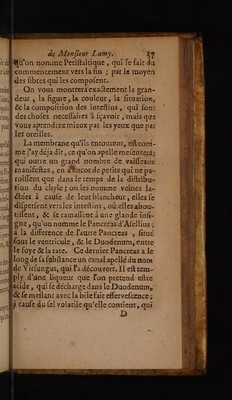 de Monsieur Lamy. 37
qu'on nomme Peristaltique, qui se fait du
commencement vers la fin ; par le moyen
des fibres qui les composent.
On vous montrera exactement la gran-
deur, la figure, la couleur, la situation,
& la composition des intestins, qui sont
des choses necessaires à sçavoir, mais que
vous aprendrez mieux par les yeux que par
les oreilles.
La membrane qu'ils entourent, est com-
me j'ay déja dit, ce qu'on apelle mesentere;
qui outre un grand nombre de vaisseaux
manifestes, en a encor de petits qui ne pa-
roissent que dans le temps de la distribu-
tion du chyle; on les nomme veines la-
ctées à cause de leur blancheur, elles se
dispersent vers les intestins, où elles abou-
tissent, & se ramassent à une glande insi-
gne, qu'on nomme le Pancreas d'Asellius,
à la difference de l'autre Pancreas, situé
sous le ventricule, & le Duodenum, entre
le foye & la rate. Ce dernier Pancreas a le
long de sa substance un canal apellé du nom
de Virsungus, qui l'a découvert. Il est tem-
ply d'une liqueur que l'on pretend estre
acide, qui se décharge dans le Duodenum,
& se meslant avec la bile fait effervescence;
à cause du sel volatile qu'elle contient, qui
D